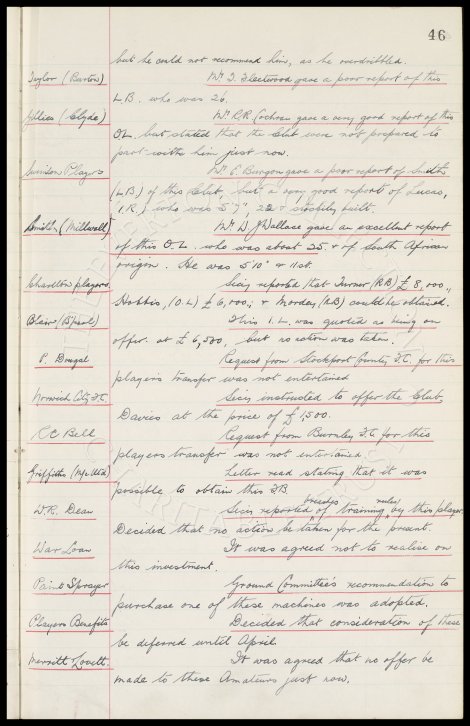 46
but he could not recommend him, as he overdribbled.
Taylor (Burton) Mr. T. Fleetwood gave a poor report of this
L.B. who was 26.
Gillies (Clyde) Mr. R.R. Cochran gave a very good report of this
OL but stated that the Club were not prepared to
part with him just now.
Swindon Players Mr. C. Burgon gave a poor report of Smith
(L.B.) of this Club, but a very good report of Lucas,
(I.R.) who was 5'9", 22 & stockily built.
Smith (Millwall) Mr. W. J. Wallace gave an excellent report
of this O.L. who was about 25 & of South African
origin. He was 5'10" & 11st.
Charlton players Secy. reported that Turner (RB) £8,000,
Hobbis, (OL) £6,000, & Mordey, (LB) could be obtained.
Blair (B'pool) This I.L. was quoted as being on
offer at £6,500, but no action was taken.
P. Dougal Request from Stockport County F.C. for this
player's transfer was not entertained
Norwich City F.C. Secy. instructed to offer the Club,
Davies at the price of £1,500.
R C Bell Request from Burnley F.C. for this
players transfer was not entertained.
Griffiths (M/c Utd) Letter read stating that it was
possible to obtain this F.B.
breach rules
W.R. Dean Secy. reported of training by this player
Decided that no action be taken for the present.
War Loan It was agreed not to realise on
this investment.
Paint Sprayer Ground Committee's recommendation to
purchase one of these machines was adopted.
Players Benefits Decided that consideration of these
be deferred until April.
Merritt Lovett. It was agreed that no offer be
made to these Amateurs just now.